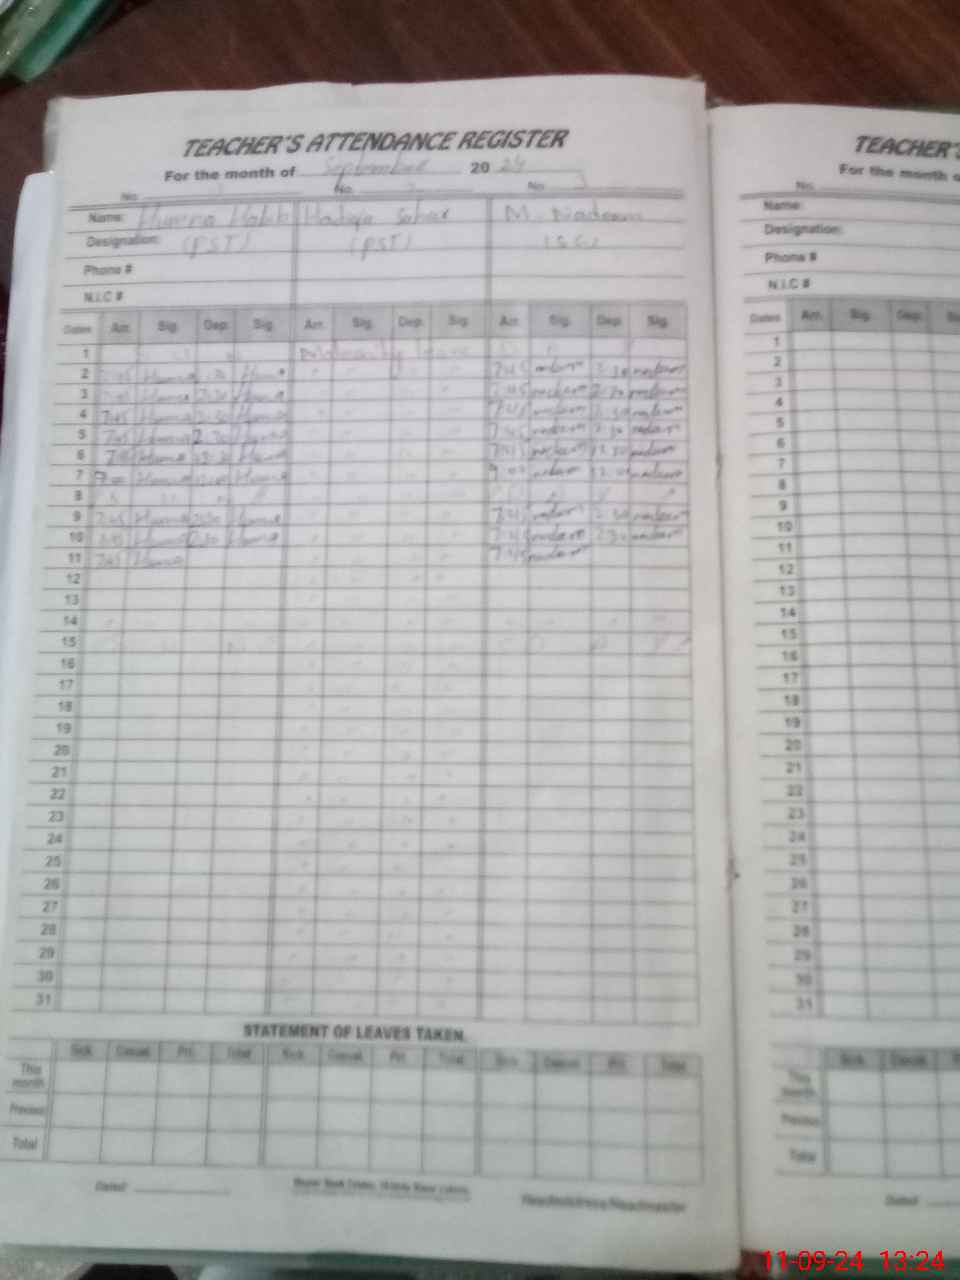 TEACHER'S ATTENDANCE REGISTER
For the month of September 20 24
No. 1 No. 2 No. 3
Name: Humna Habib Hadiqa Sahar M. Nadeem
Designation: (PST) (PST) (SC)
Phone #
N.I.C #
Dates Arr. Sig. Dep. Sig. Arr. Sig. Dep. Sig. Arr. Sig. Dep. Sig.
1 Maternity leave
2 7:45 Humna Humna 7:45 nadeem 2:30 nadeem
3 7:45 Humna 2:30 Humna 7:45 nadeem 2:30 nadeem
4 7:45 Humna 2:30 Humna 7:45 nadeem 2:30 nadeem
5 7:45 Humna 2:30 Humna 7:45 nadeem 2:30 nadeem
6 7:45 Humna Humna 7:45 nadeem 12:30 nadeem
7 9:00 Humna 12:00 Humna 9:00 nadeem 12:00 nadeem
8
9 7:45 Humna 2:30 Humna 7:45 nadeem 2:30 nadeem
10 7:45 Humna 2:30 Humna 7:45 nadeem 2:30 nadeem
11 7:45 Humna 7:45 nadeem
12
13
14
15
16
17
18
19
20
21
22
23
24
25
26
27
28
29
30
31
STATEMENT OF LEAVES TAKEN.
Sick. Casual. Pri. Total. Sick. Casual. Pri. Total. Sick. Casual. Pri. Total.
This month
Previous
Total
Dated
Headmistress/Headmaster
TEACHER'S
For the month o
No.
Name:
Designation:
Phone #
N.I.C #
Dates Arr. Sig. Dep.
1
2
3
4
5
6
7
8
9
10
11
12
13
14
15
16
17
18
19
20
21
22
23
24
25
26
27
28
29
30
31
Sick. Casual.
This month
Previous
Total
Dated
11-09-24 13:24